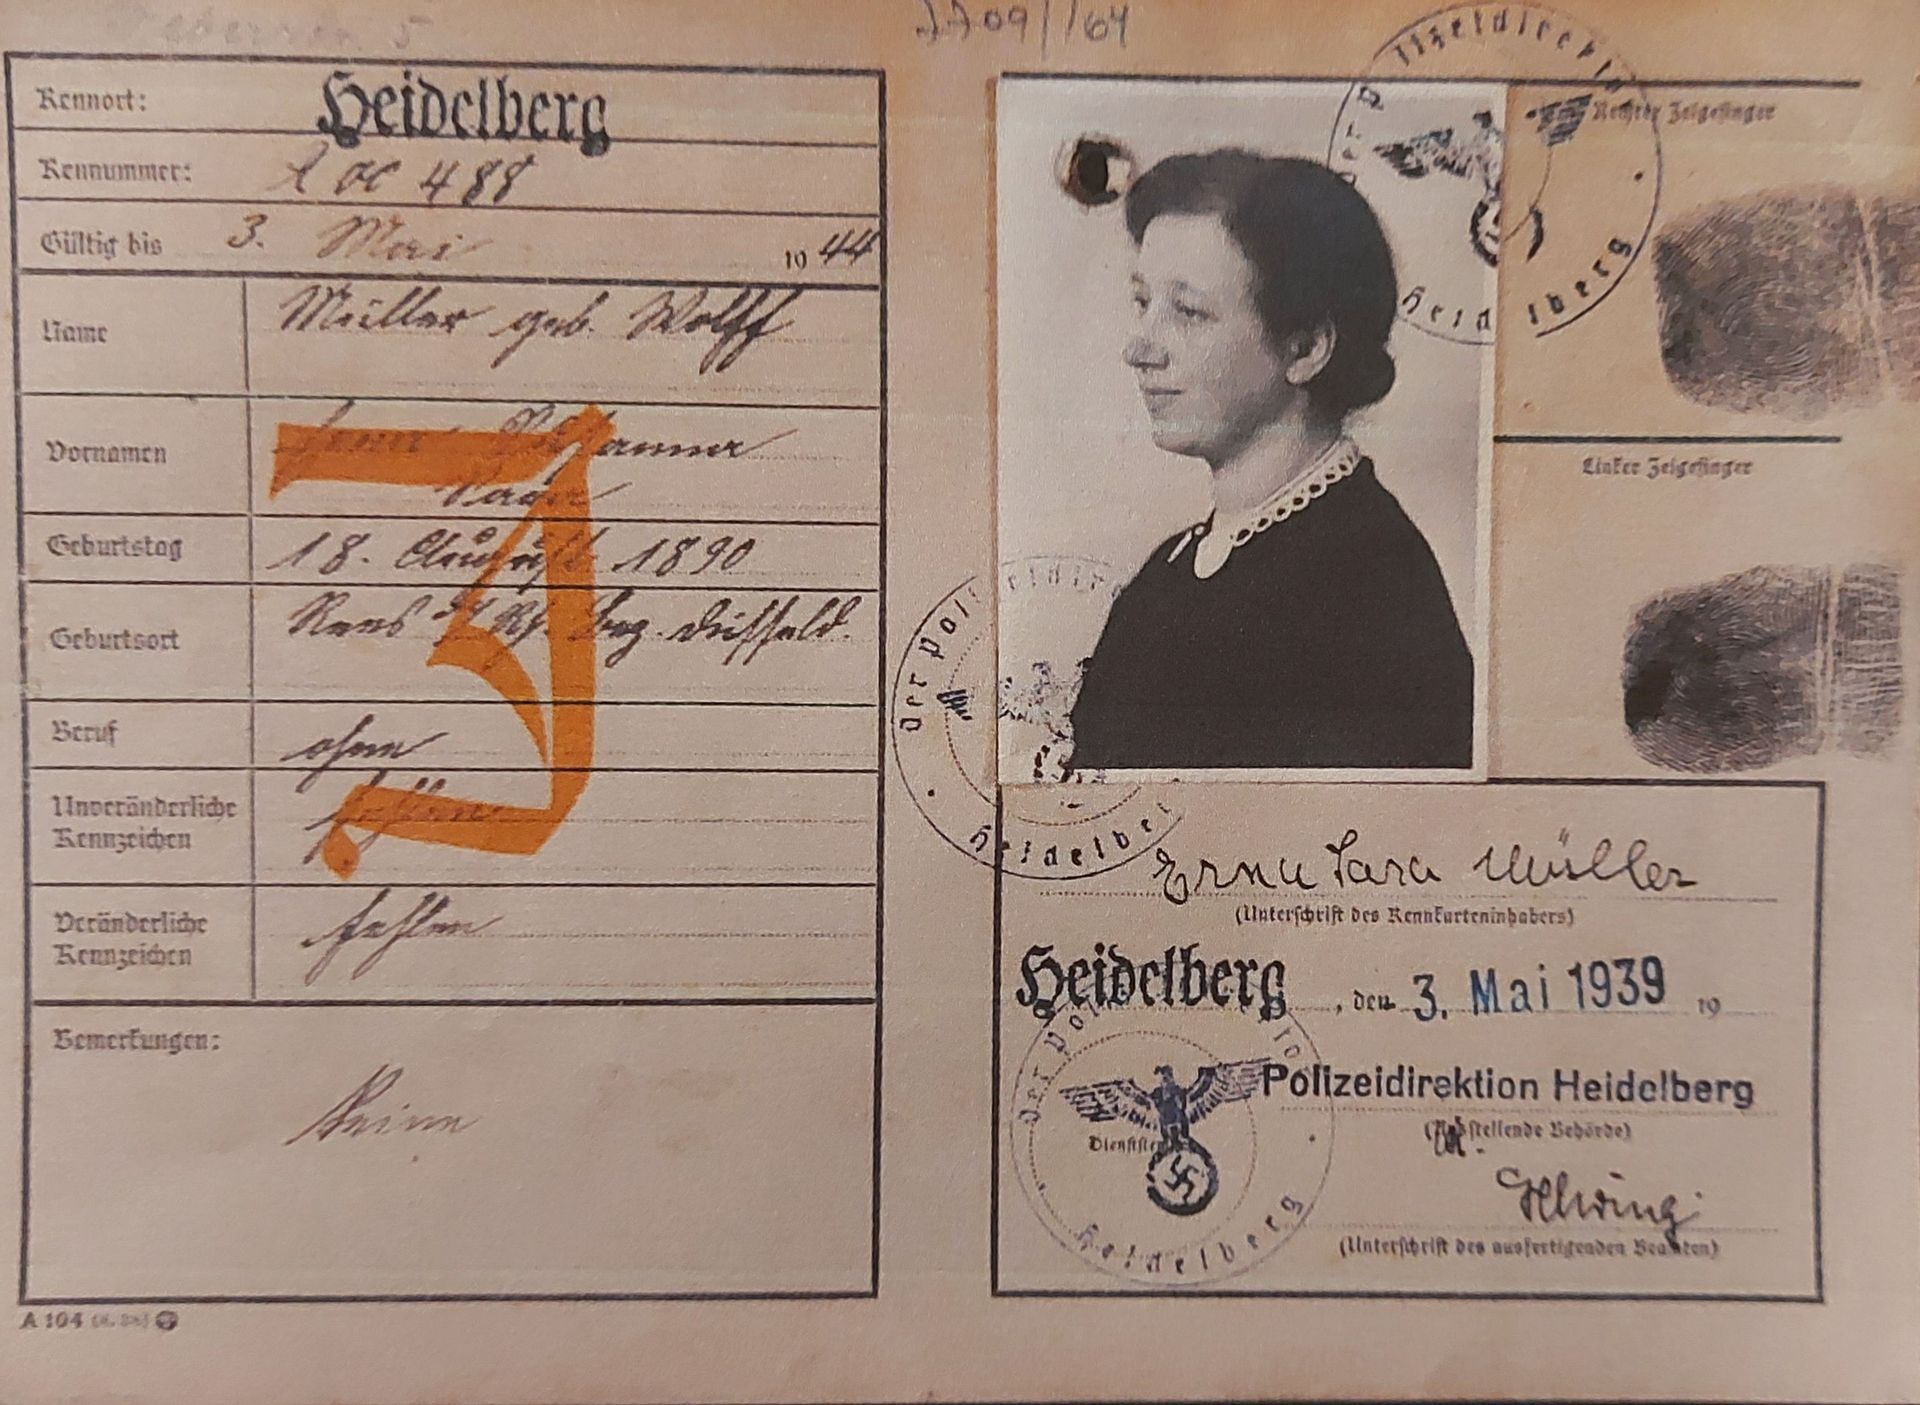 Kennort:
Heidelberg
Kennummer:
A 00 488
Gültig bis 3. Mai 1944
Name
Müller geb. Wolff
Vornamen
Erna Johanna
Sara
J
Geburtstag
18. August 1890
Geburtsort
Rees Rh. Bez. Düsseld.
Beruf
ohne
Unveränderliche
Kennzeichen
fehlen
Veränderliche
Kennzeichen
fehlen
Bemerkungen:
Keine
A 104
Rechter Zeigefinger
Linker Zeigefinger
Der Polizeidirektor
Heidelberg
Der Polizeidirektor
Heidelberg
Erna Sara Müller
(Unterschrift des Kennkarteninhabers)
Heidelberg, den 3. Mai 1939 19
Der Polizeidirektor
Heidelberg
Polizeidirektion Heidelberg
(Ausstellende Behörde)
(Unterschrift des ausfertigenden Beamten)